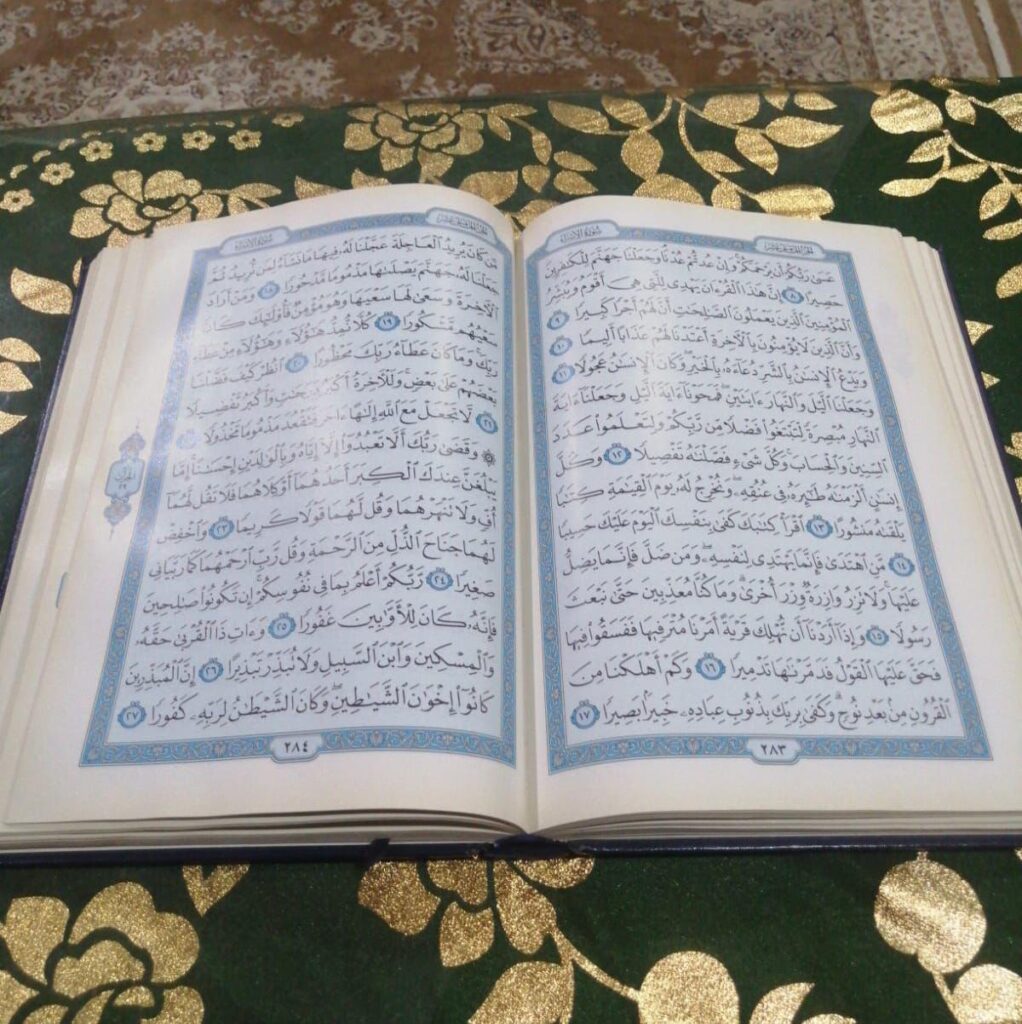 سُورَةُ الإِسْرَاءِ
الجُزْءُ الخَامِسَ عَشَرَ
عَسَىٰ رَبُّكُمْ أَن يَرْحَمَكُمْ وَإِنْ عُدتُّمْ عُدْنَا وَجَعَلْنَا جَهَنَّمَ لِلْكَٰفِرِينَ
حَصِيرًا ٨ إِنَّ هَٰذَا الْقُرْءَانَ يَهْدِي لِلَّتِي هِيَ أَقْوَمُ وَيُبَشِّرُ
الْمُؤْمِنِينَ الَّذِينَ يَعْمَلُونَ الصَّٰلِحَٰتِ أَنَّ لَهُمْ أَجْرًا كَبِيرًا ٩
وَأَنَّ الَّذِينَ لَا يُؤْمِنُونَ بِالْءَاخِرَةِ أَعْتَدْنَا لَهُمْ عَذَابًا أَلِيمًا ١٠
وَيَدْعُ الْإِنسَٰنُ بِالشَّرِّ دُعَاءَهُ بِالْخَيْرِ وَكَانَ الْإِنسَٰنُ عَجُولًا ١١
وَجَعَلْنَا الَّيْلَ وَالنَّهَارَ ءَايَتَيْنِ فَمَحَوْنَا ءَايَةَ الَّيْلِ وَجَعَلْنَا ءَايَةَ
النَّهَارِ مُبْصِرَةً لِّتَبْتَغُوا فَضْلًا مِّن رَّبِّكُمْ وَلِتَعْلَمُوا عَدَدَ
السِّنِينَ وَالْحِسَابَ وَكُلَّ شَيْءٍ فَصَّلْنَٰهُ تَفْصِيلًا ١٢ وَكُلَّ
إِنسَٰنٍ أَلْزَمْنَٰهُ طَٰئِرَهُ فِي عُنُقِهِ وَنُخْرِجُ لَهُ يَوْمَ الْقِيَٰمَةِ كِتَٰبًا
يَلْقَىٰهُ مَنشُورًا ١٣ اقْرَأْ كِتَٰبَكَ كَفَىٰ بِنَفْسِكَ الْيَوْمَ عَلَيْكَ حَسِيبًا
١٤ مَّنِ اهْتَدَىٰ فَإِنَّمَا يَهْتَدِي لِنَفْسِهِ وَمَن ضَلَّ فَإِنَّمَا يَضِلُّ
عَلَيْهَا وَلَا تَزِرُ وَازِرَةٌ وِزْرَ أُخْرَىٰ وَمَا كُنَّا مُعَذِّبِينَ حَتَّىٰ نَبْعَثَ
رَسُولًا ١٥ وَإِذَا أَرَدْنَا أَن نُّهْلِكَ قَرْيَةً أَمَرْنَا مُتْرَفِيهَا فَفَسَقُوا فِيهَا
فَحَقَّ عَلَيْهَا الْقَوْلُ فَدَمَّرْنَٰهَا تَدْمِيرًا ١٦ وَكَمْ أَهْلَكْنَا مِنَ
الْقُرُونِ مِنۢ بَعْدِ نُوحٍ وَكَفَىٰ بِرَبِّكَ بِذُنُوبِ عِبَادِهِ خَبِيرًۢا بَصِيرًا ١٧
٢٨٣
الجُزْءُ الخَامِسَ عَشَرَ
سُورَةُ الإِسْرَاءِ
مَّن كَانَ يُرِيدُ الْعَاجِلَةَ عَجَّلْنَا لَهُ فِيهَا مَا نَشَاءُ لِمَن نُّرِيدُ ثُمَّ
جَعَلْنَا لَهُ جَهَنَّمَ يَصْلَىٰهَا مَذْمُومًا مَّدْحُورًا ١٨ وَمَنْ أَرَادَ
الْءَاخِرَةَ وَسَعَىٰ لَهَا سَعْيَهَا وَهُوَ مُؤْمِنٌ فَأُولَٰئِكَ كَانَ
سَعْيُهُم مَّشْكُورًا ١٩ كُلًّا نُّمِدُّ هَٰؤُلَاءِ وَهَٰؤُلَاءِ مِنْ عَطَاءِ
رَبِّكَ وَمَا كَانَ عَطَاءُ رَبِّكَ مَحْظُورًا ٢٠ انظُرْ كَيْفَ فَضَّلْنَا
بَعْضَهُمْ عَلَىٰ بَعْضٍ وَلَلْءَاخِرَةُ أَكْبَرُ دَرَجَٰتٍ وَأَكْبَرُ تَفْضِيلًا
٢١ لَّا تَجْعَلْ مَعَ اللَّهِ إِلَٰهًا ءَاخَرَ فَتَقْعُدَ مَذْمُومًا مَّخْذُولًا ٢٢
۞ وَقَضَىٰ رَبُّكَ أَلَّا تَعْبُدُوا إِلَّا إِيَّاهُ وَبِالْوَٰلِدَيْنِ إِحْسَٰنًا إِمَّا
يَبْلُغَنَّ عِندَكَ الْكِبَرَ أَحَدُهُمَا أَوْ كِلَاهُمَا فَلَا تَقُل لَّهُمَا
أُفٍّ وَلَا تَنْهَرْهُمَا وَقُل لَّهُمَا قَوْلًا كَرِيمًا ٢٣ وَاخْفِضْ
لَهُمَا جَنَاحَ الذُّلِّ مِنَ الرَّحْمَةِ وَقُل رَّبِّ ارْحَمْهُمَا كَمَا رَبَّيَانِي
صَغِيرًا ٢٤ رَّبُّكُمْ أَعْلَمُ بِمَا فِي نُفُوسِكُمْ إِن تَكُونُوا صَٰلِحِينَ
فَإِنَّهُ كَانَ لِلْأَوَّٰبِينَ غَفُورًا ٢٥ وَءَاتِ ذَا الْقُرْبَىٰ حَقَّهُ
وَالْمِسْكِينَ وَابْنَ السَّبِيلِ وَلَا تُبَذِّرْ تَبْذِيرًا ٢٦ إِنَّ الْمُبَذِّرِينَ
كَانُوا إِخْوَٰنَ الشَّيَٰطِينِ وَكَانَ الشَّيْطَٰنُ لِرَبِّهِ كَفُورًا ٢٧
٢٨٤